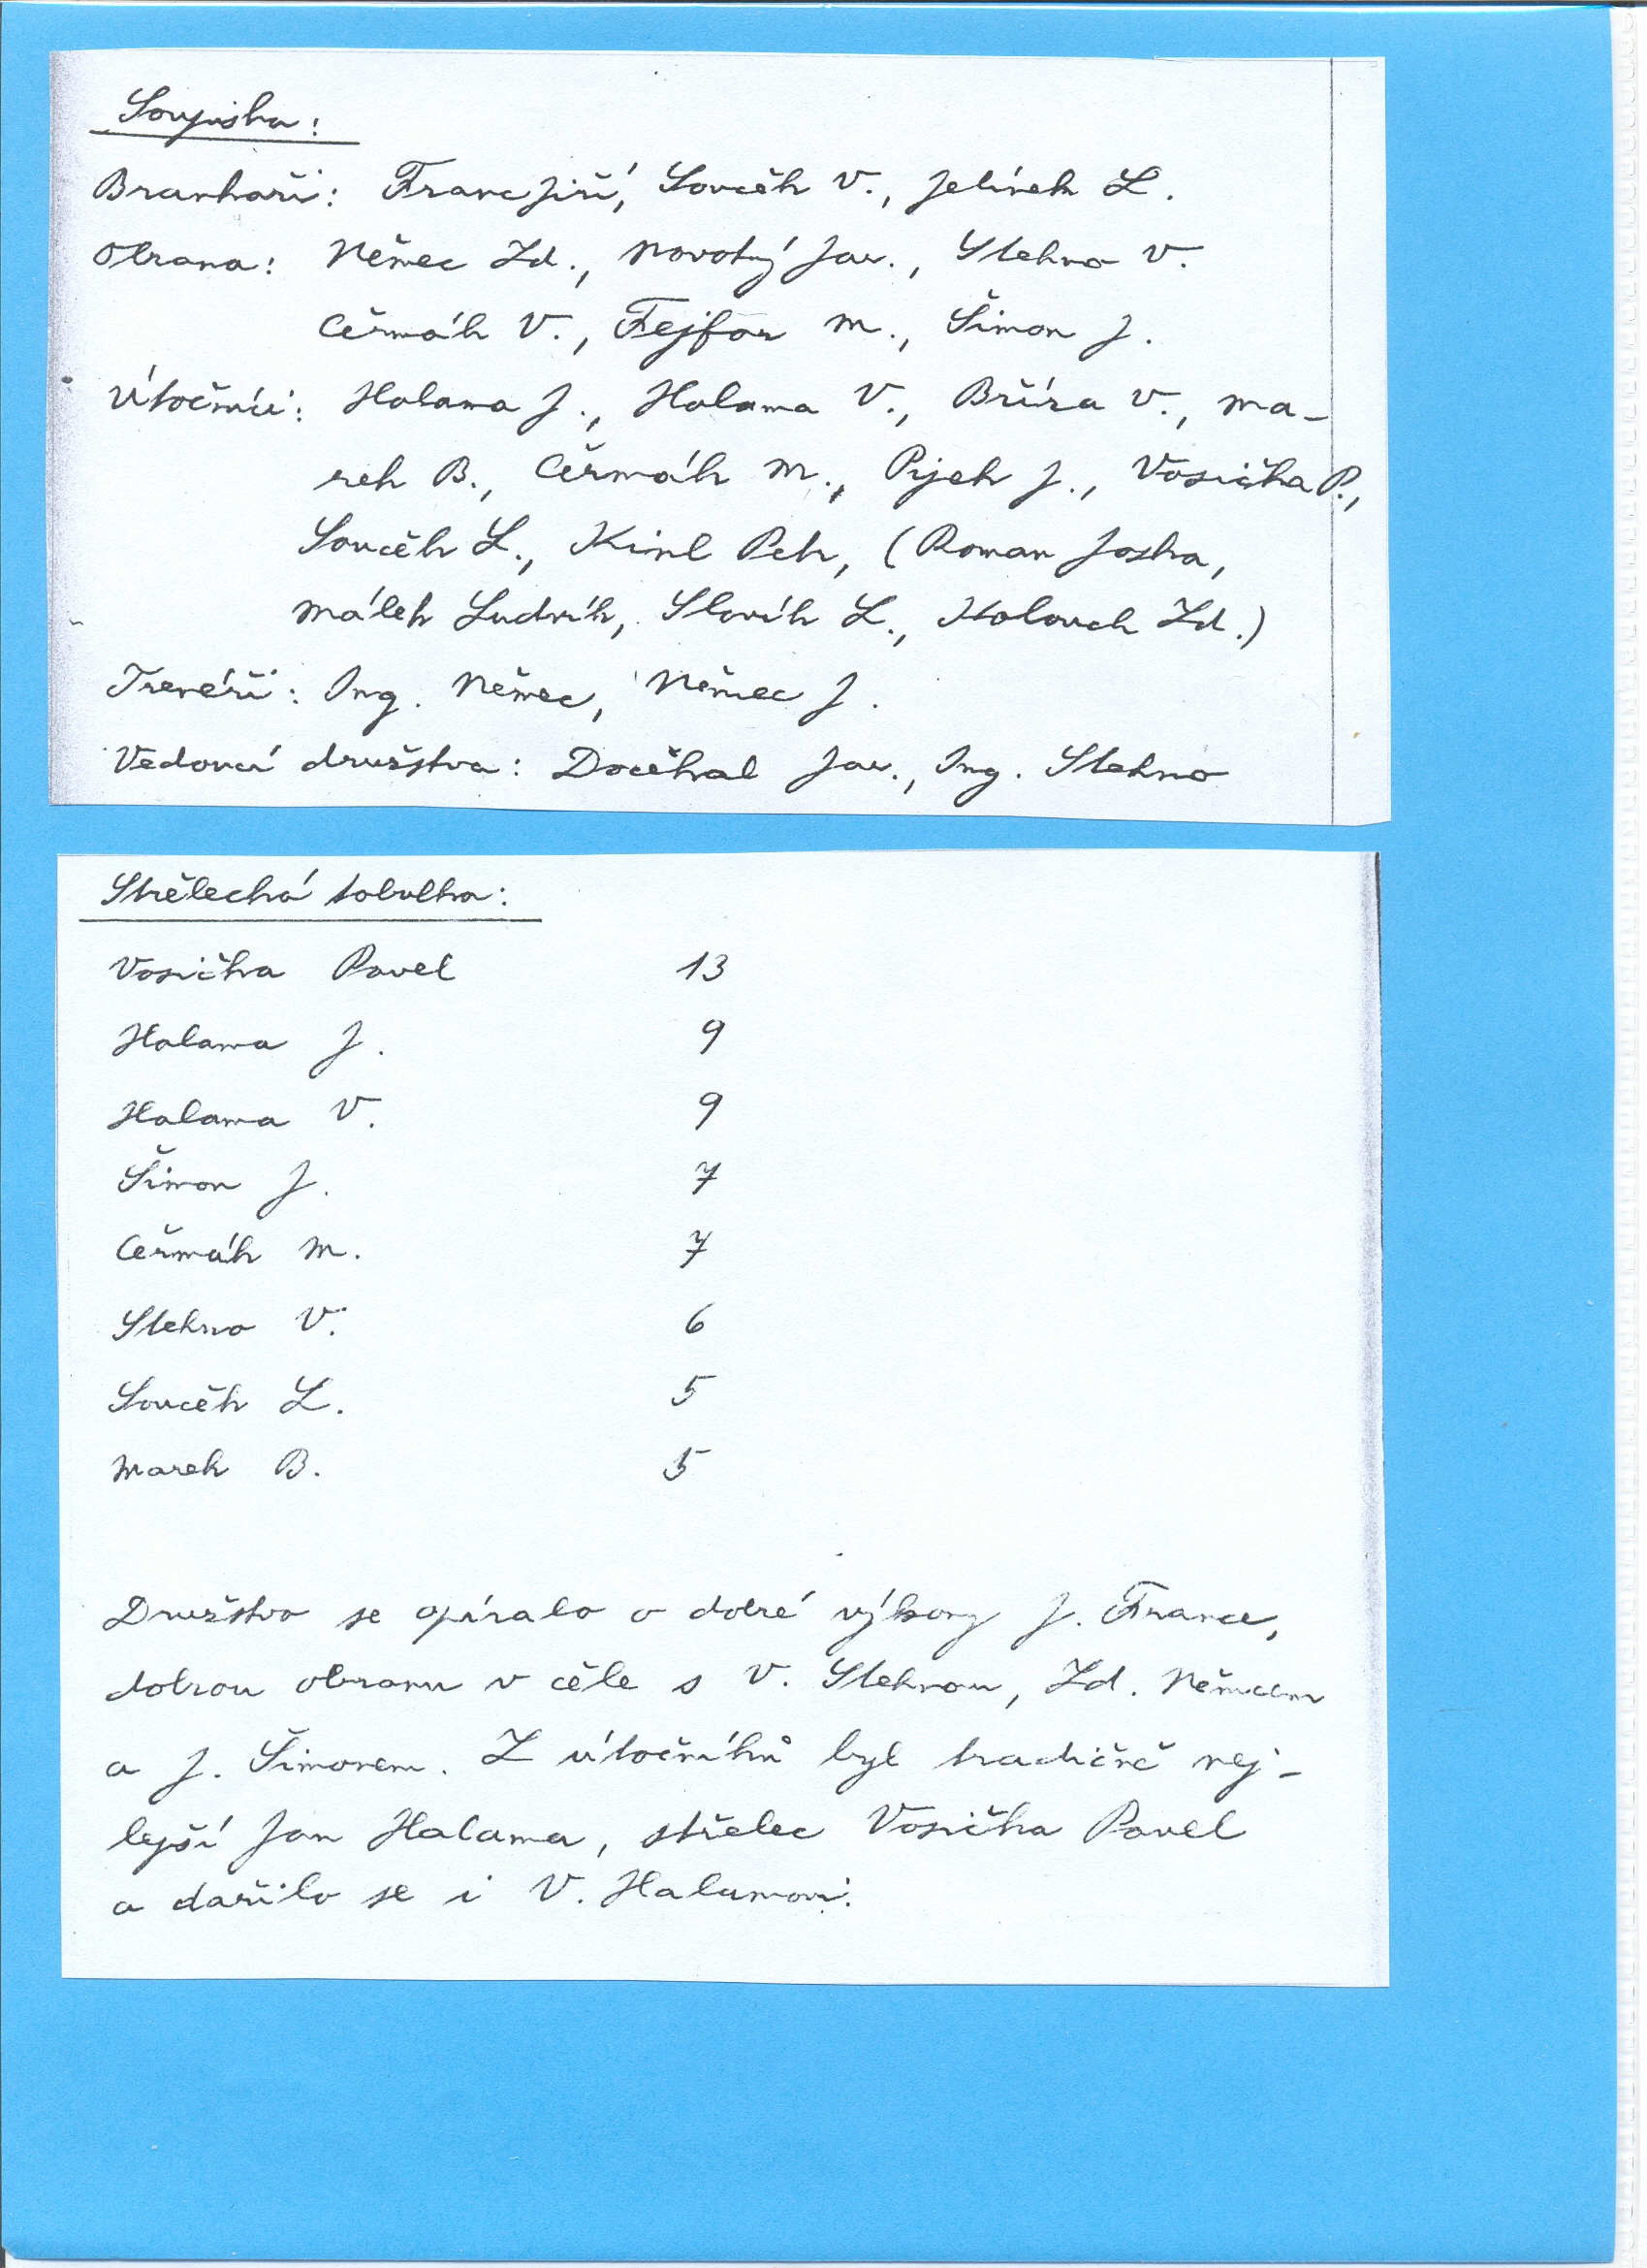 Soupiska:
Brankaři: Franc Jiří, Souček V., Jelínek L.
Obrana: Němec Zd., Novotný Jar., Stehno V.
Čermák V., Fejfar M., Šimon J.
Útočníci: Halama J., Halama V., Bříza V., Ma-
rek B., Čermák M., Pijek J., Vosička P.,
Souček L., Kiml Petr, (Roman Joska,
Málek Ludvík, Slavík L., Kolouch Zd.)
Trenéři: Ing. Němec, Němec J.
Vedoucí družstva: Dočekal Jar., Ing. Stehno
Střelecká tabulka:
Vosička Pavel 13
Halama J. 9
Halama V. 9
Šimon J. 7
Čermák M. 7
Stehno V. 6
Souček L. 5
Marek B. 5
Družstvo se opíralo o dobré výkony J. France,
dobrou obranu v čele s V. Stehnou, Zd. Němcem
a J. Šimonem. Z útočníků byl tradičně nej-
lepší Jan Halama, střelec Vosička Pavel
a dařilo se i V. Halamovi.